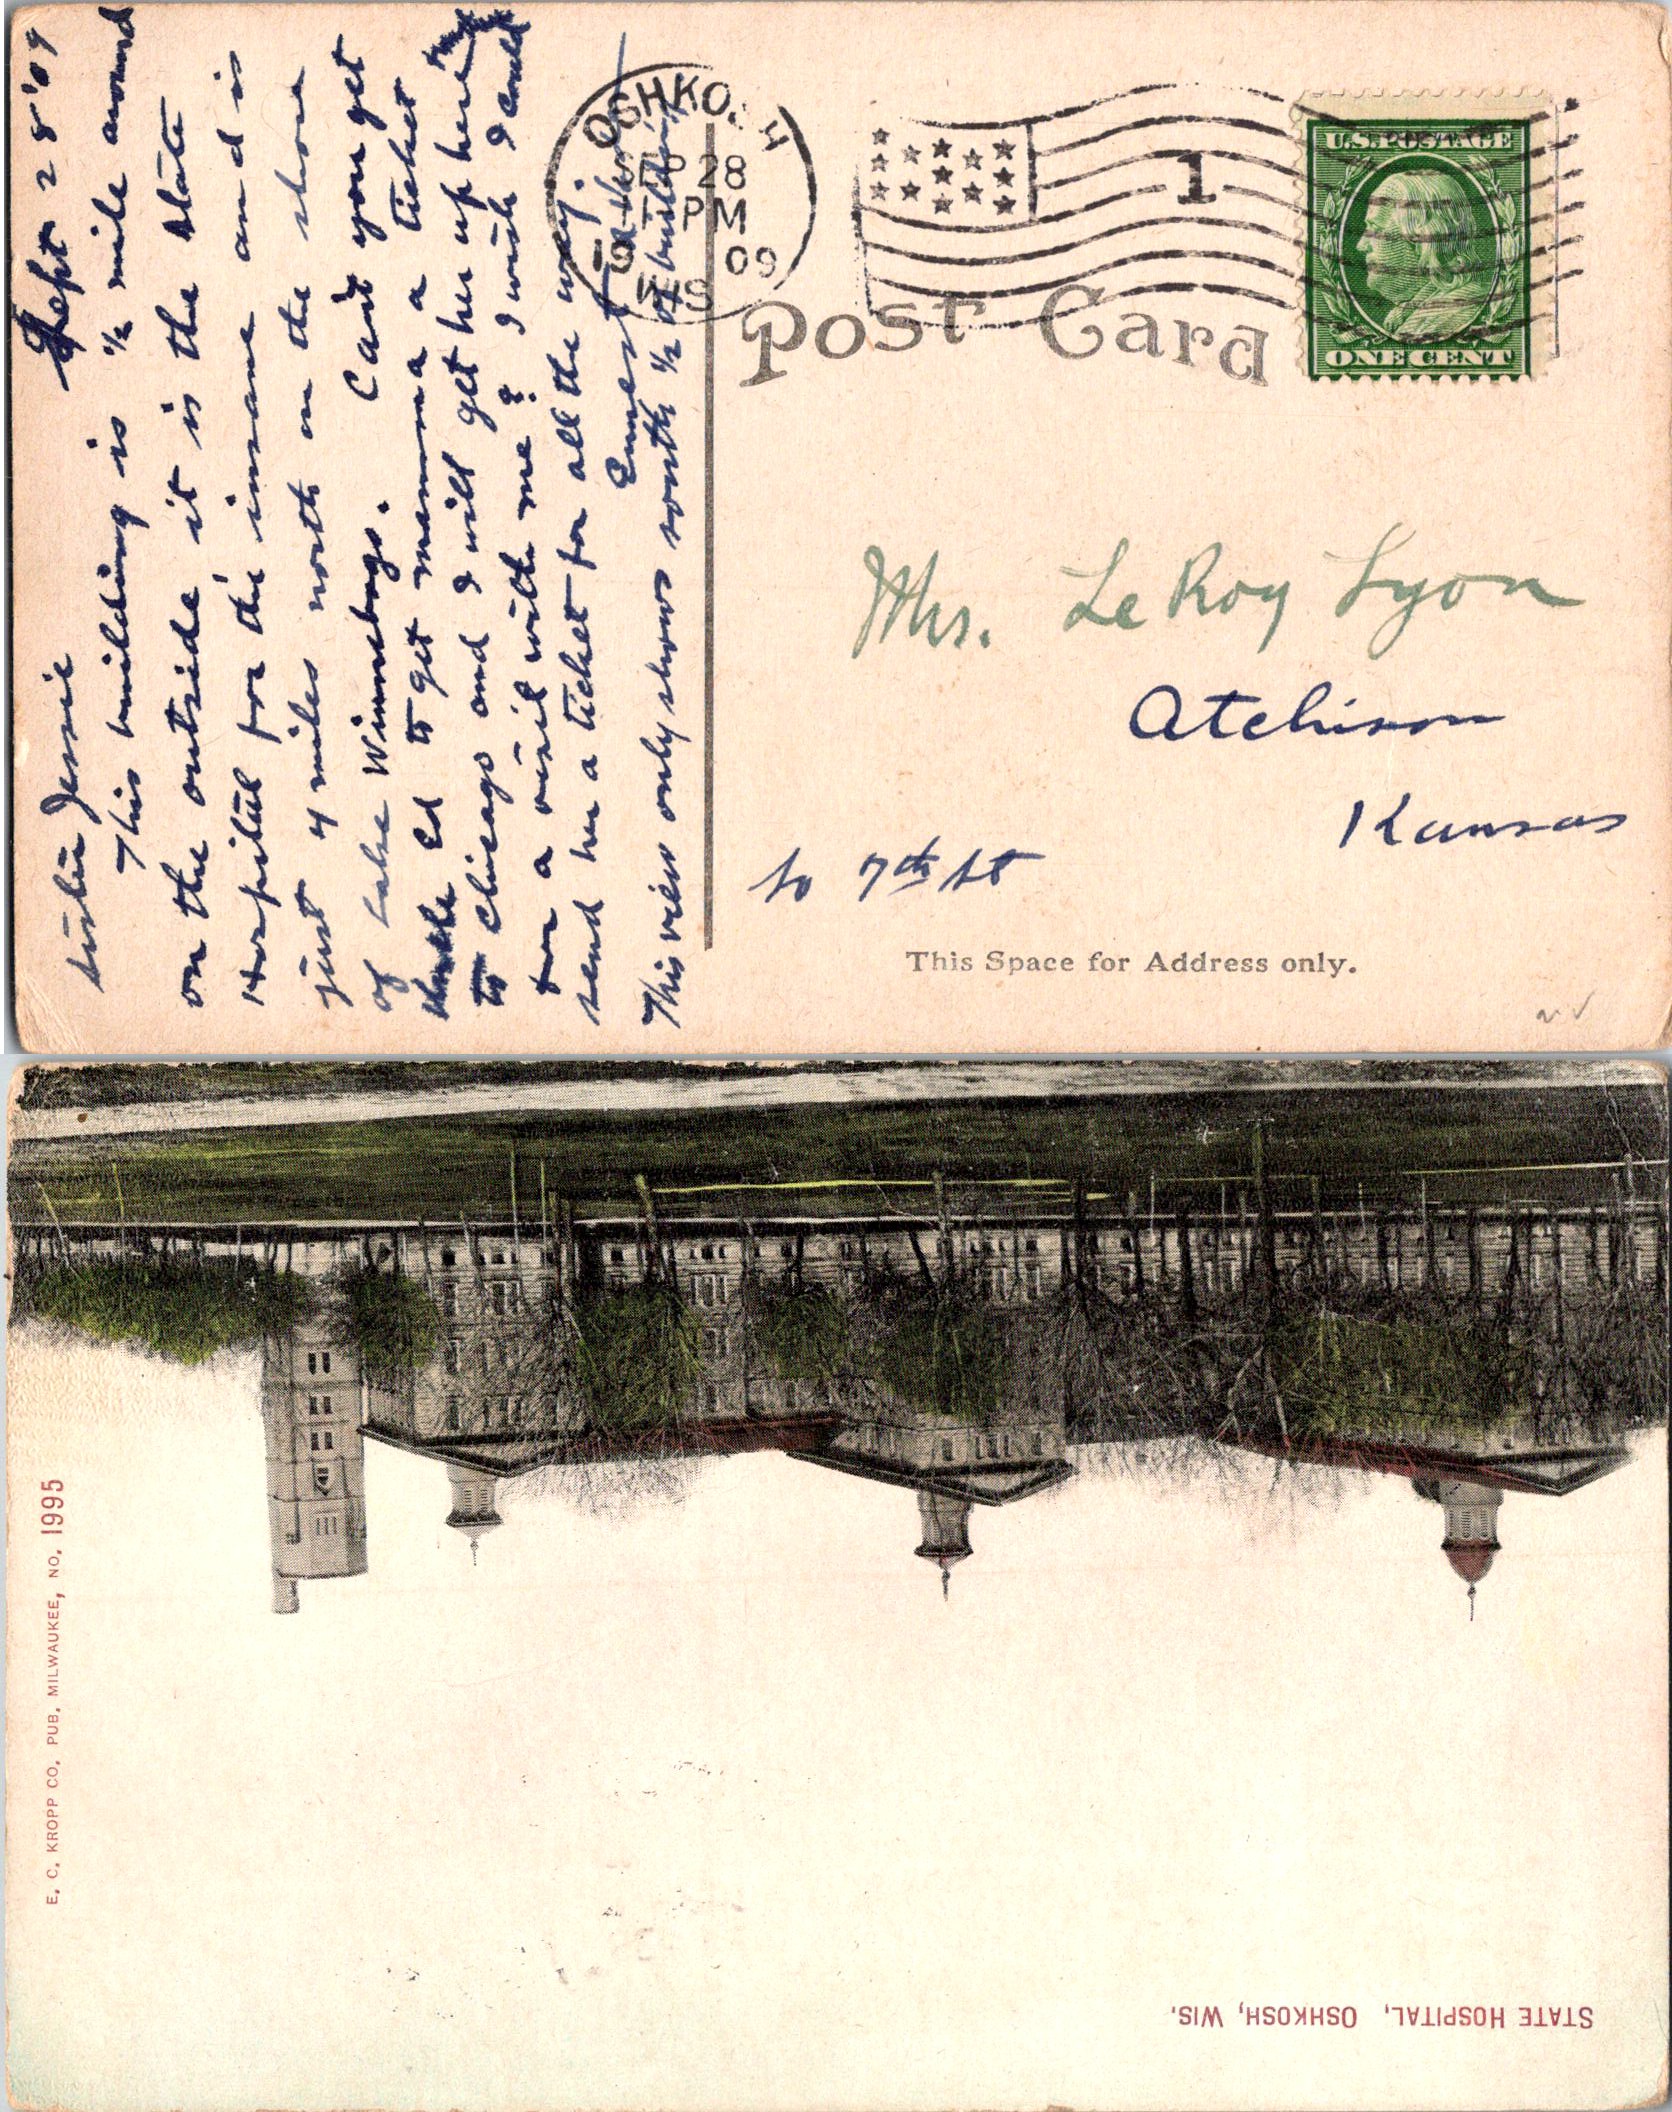 Sept 28 '09
Sister Jessie
This building is ½ mile around
on the outside it is the state
Hospital for the insane and is
just 4 miles north on the shore
of Lake Winnebago. Can't you get
Uncle Ed to get mamma a ticket
to Chicago and I will get her up here
for a visit with me? I wish I could
send her a ticket for all the way.
Ernest
This view only shows south ½ of building
OSHKOSH
WIS
SEP 28
PM
09
1
U.S. POSTAGE
ONE CENT
Post Card
Mrs. LeRoy Lyon
Atchison
Kansas
So 7th St
This Space for Address only.
E. C. KROPP CO. PUB. MILWAUKEE, NO. 1995
STATE HOSPITAL, OSHKOSH, WIS.